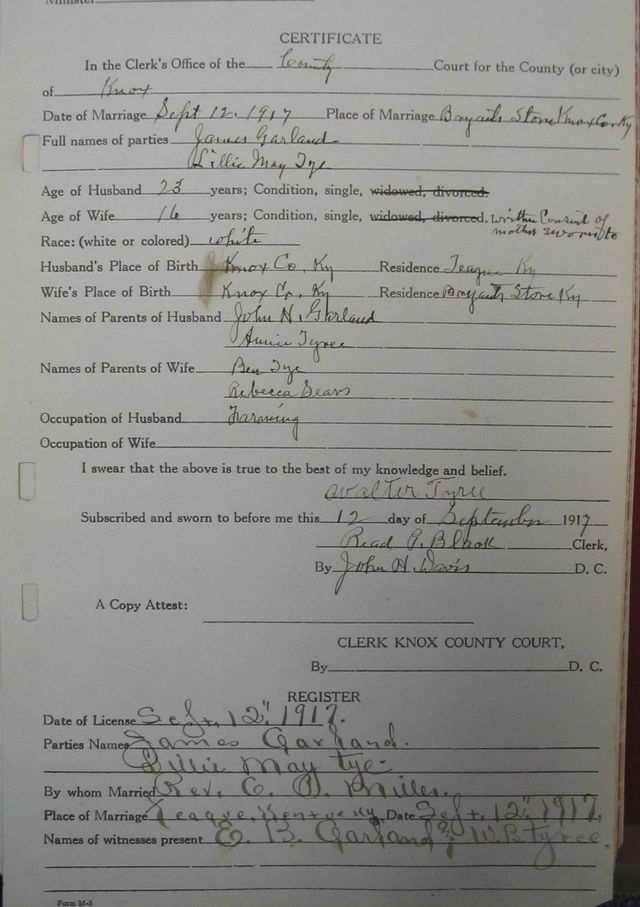 Minister
CERTIFICATE
In the Clerk's Office of the County Court for the County (or city)
of Knox
Date of Marriage Sept 12, 1917 Place of Marriage Bryants Store Knox Co. Ky
Full names of parties James Garland
Lillie May Tye
Age of Husband 23 years; Condition, single, widowed, divorced.
Age of Wife 16 years; Condition, single, widowed, divorced. written Consent of
mother sworn to
Race: (white or colored) white
Husband's Place of Birth Knox Co, Ky Residence Teague Ky
Wife's Place of Birth Knox Co, Ky Residence Bryants Store Ky
Names of Parents of Husband John H. Garland
Annie Tyree
Names of Parents of Wife Ben Tye
Rebecca Sears
Occupation of Husband Farming
Occupation of Wife
I swear that the above is true to the best of my knowledge and belief.
Walter Tyree
Subscribed and sworn to before me this 12 day of September 1917
Read P. Black Clerk,
By John H. Davis D. C.
A Copy Attest:
CLERK KNOX COUNTY COURT,
By D. C.
REGISTER
Date of License Sept, 12" 1917.
Parties Names James Garland.
Lillie May Tye
By whom Married Rev, Miller.
Place of Marriage Teague, Kentucky, Date Sept, 12" 1917,
Names of witnesses present E. B. Garland & W. B. tyree
Form M-3